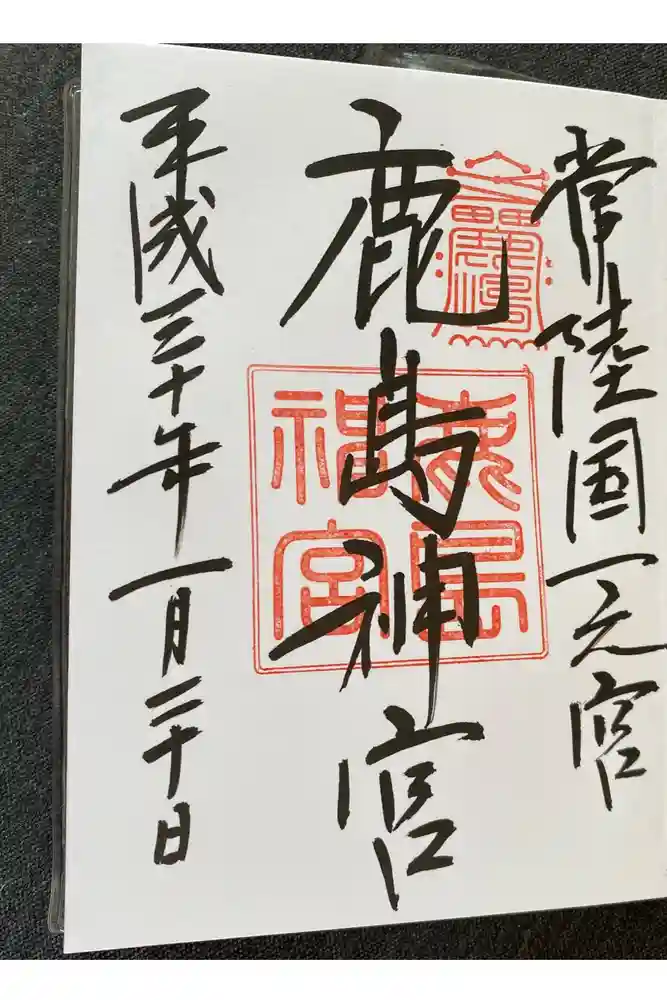 常陸国一之宮
鹿島神宮
平成三十年一月二十日
鹿島
神宮